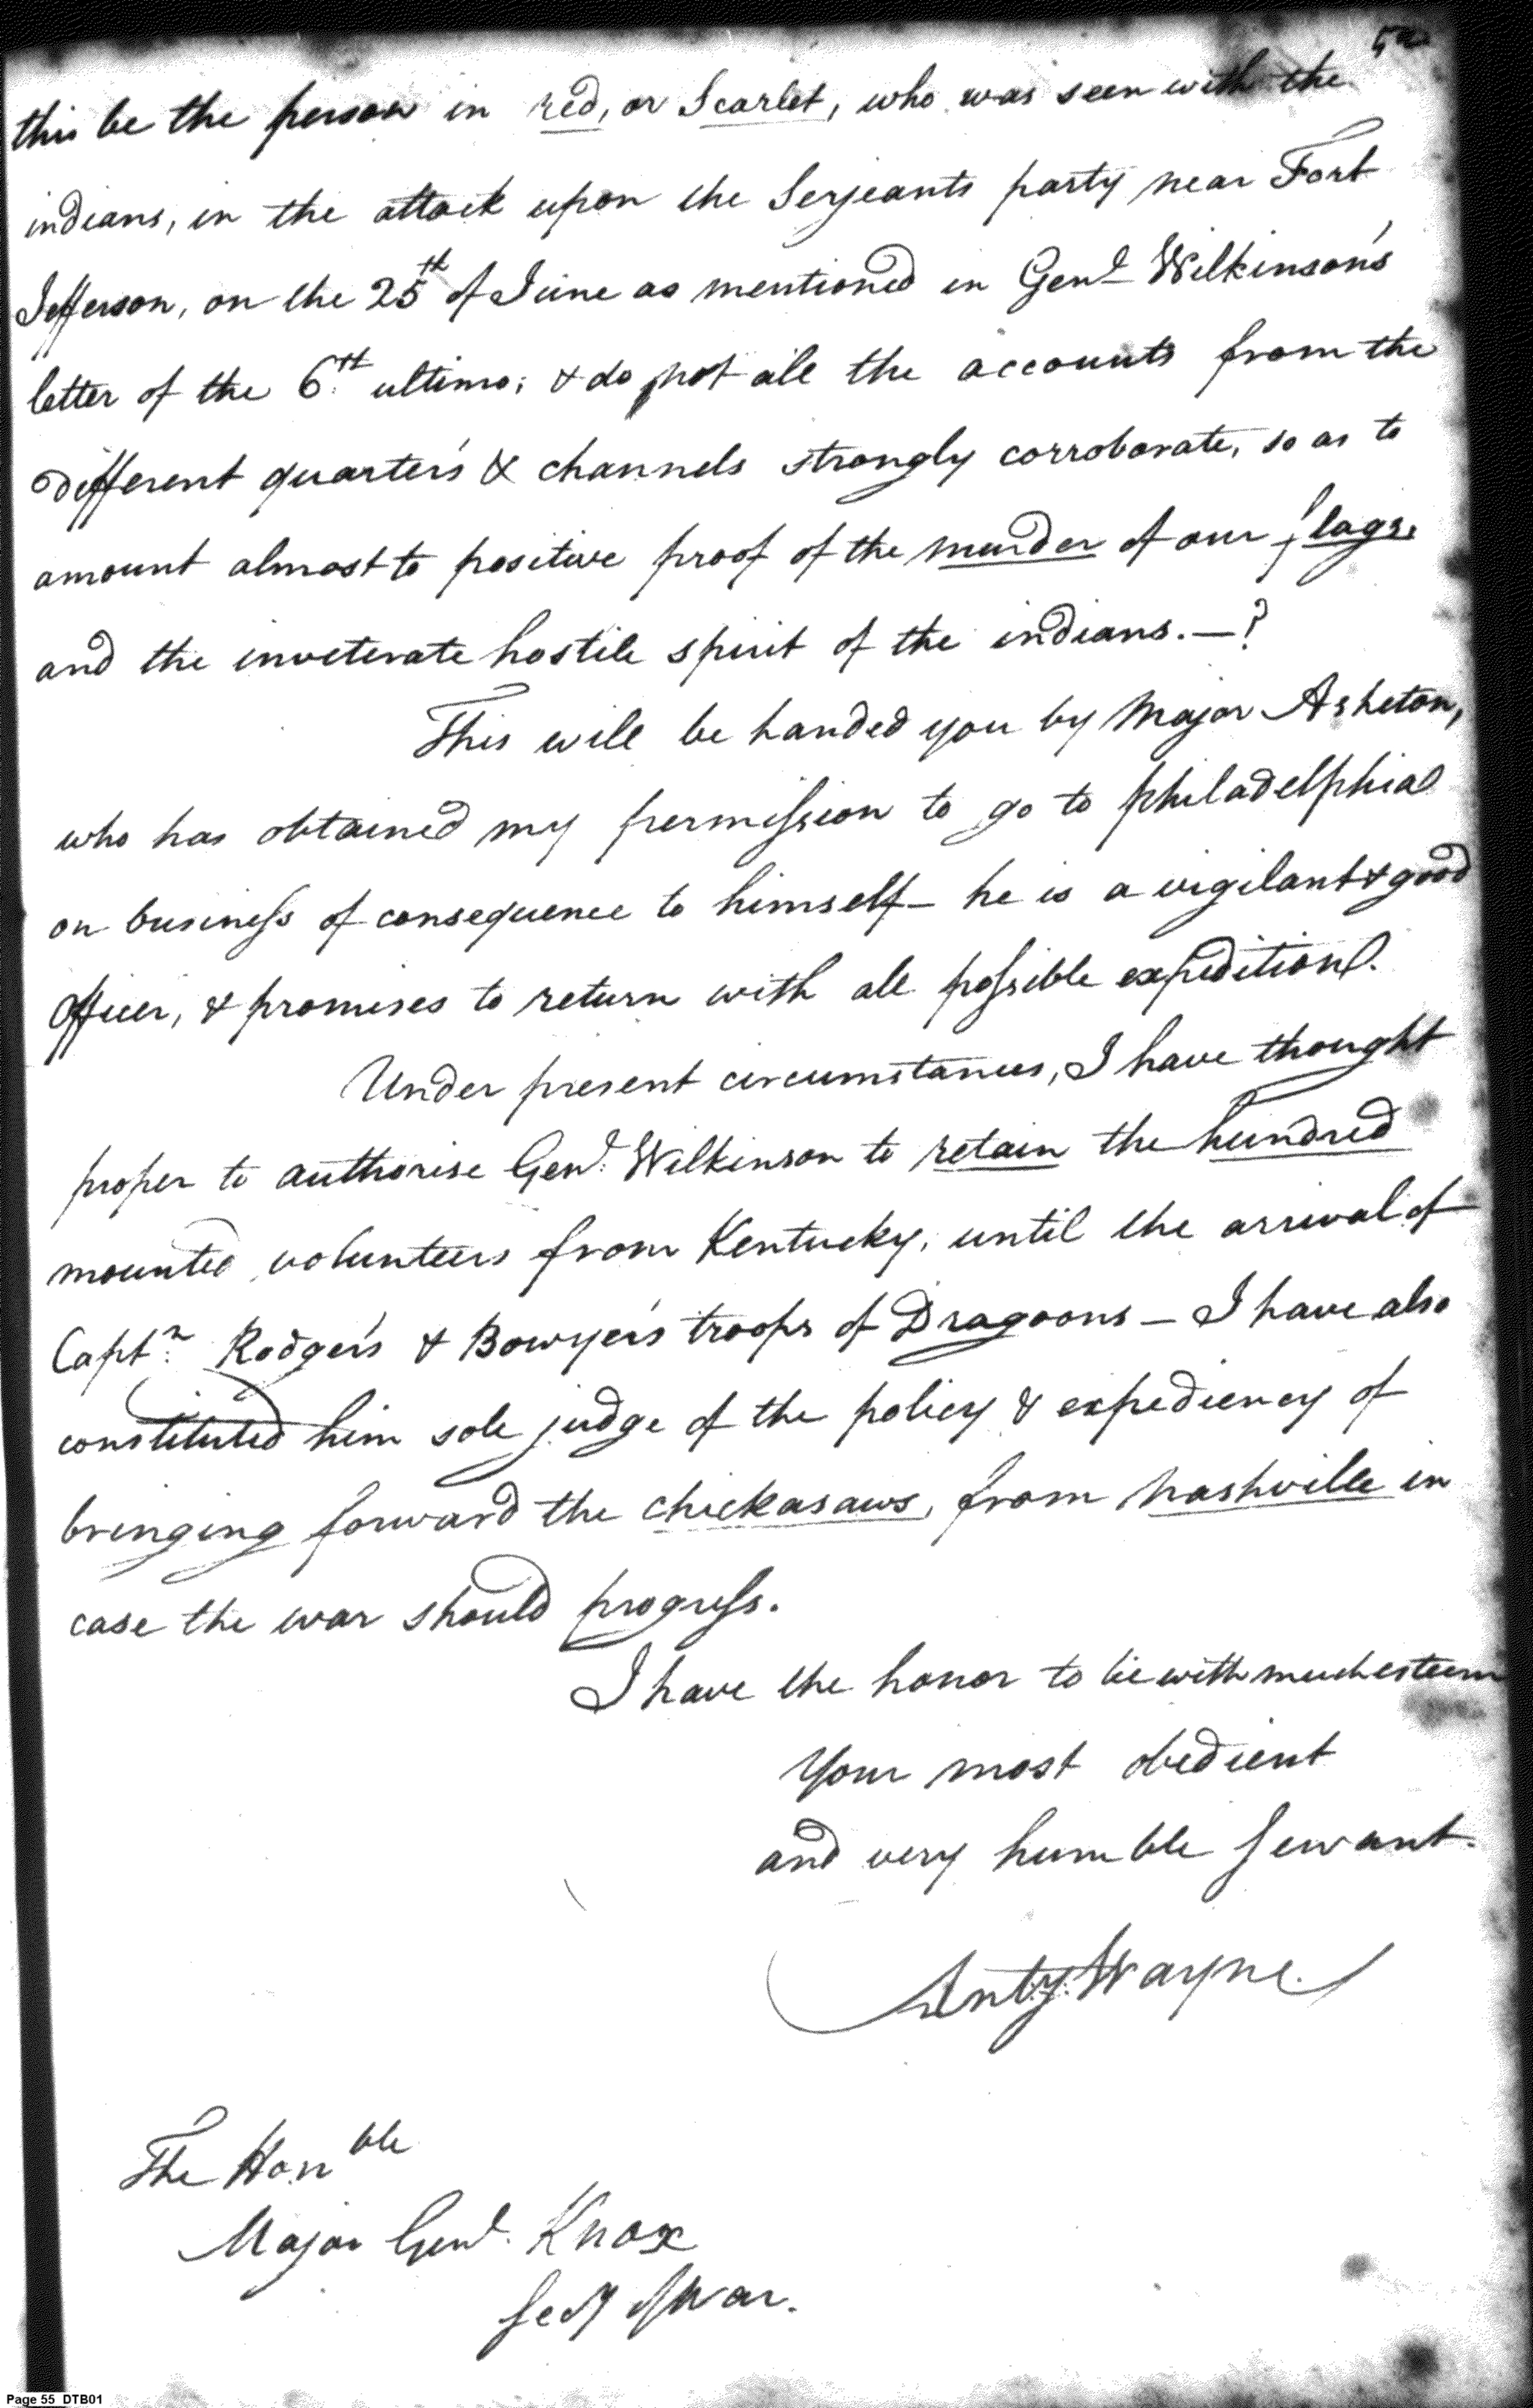 this be the person in red, or Scarlet, who was seen with the
indians, in the attack upon the Serjeants party near Fort
Jefferson, on the 25th of June as mentioned in Genl Wilkinson's
letter of the 6th ultimo; & do not all the accounts from the
different quarter's & channels strongly corroborate, so as to
amount almost to positive proof of the murder of our flags,
and the inveterate hostile spirit of the indians. — ?
This will be handed you by Major Asheton,
who has obtained my permission to go to philadelphia
on business of consequence to himself — he is a vigilant & good
officer, & promises to return with all possible expedition.
Under present circumstances, I have thought
proper to authorise Genl. Wilkinson to retain the hundred
mounted volunteers from Kentucky, until the arrival of
Captn. Rodger's & Bowyer's troops of Dragoons — I have also
constituted him sole judge of the policy & expediency of
bringing forward the chickasaws, from nashville in
case the war should progress.
I have the honor to be with much esteem
Your most obedient
and very humble Servant.
Anty. Wayne.
The Honble
Major Genl. Knox
Secy of War.
Page 55 DTB01